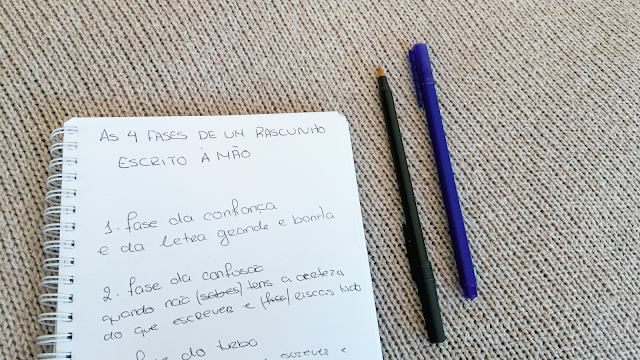 AS 4 FASES DE UM RASCUNHO
ESCRITO À MÃO
1. fase da confiança
e da letra grande e bonita
2. fase da confusão
quando não (sabes) tens a certeza
do que escrever e (fica) riscas tudo
fase do turbo
escrever e